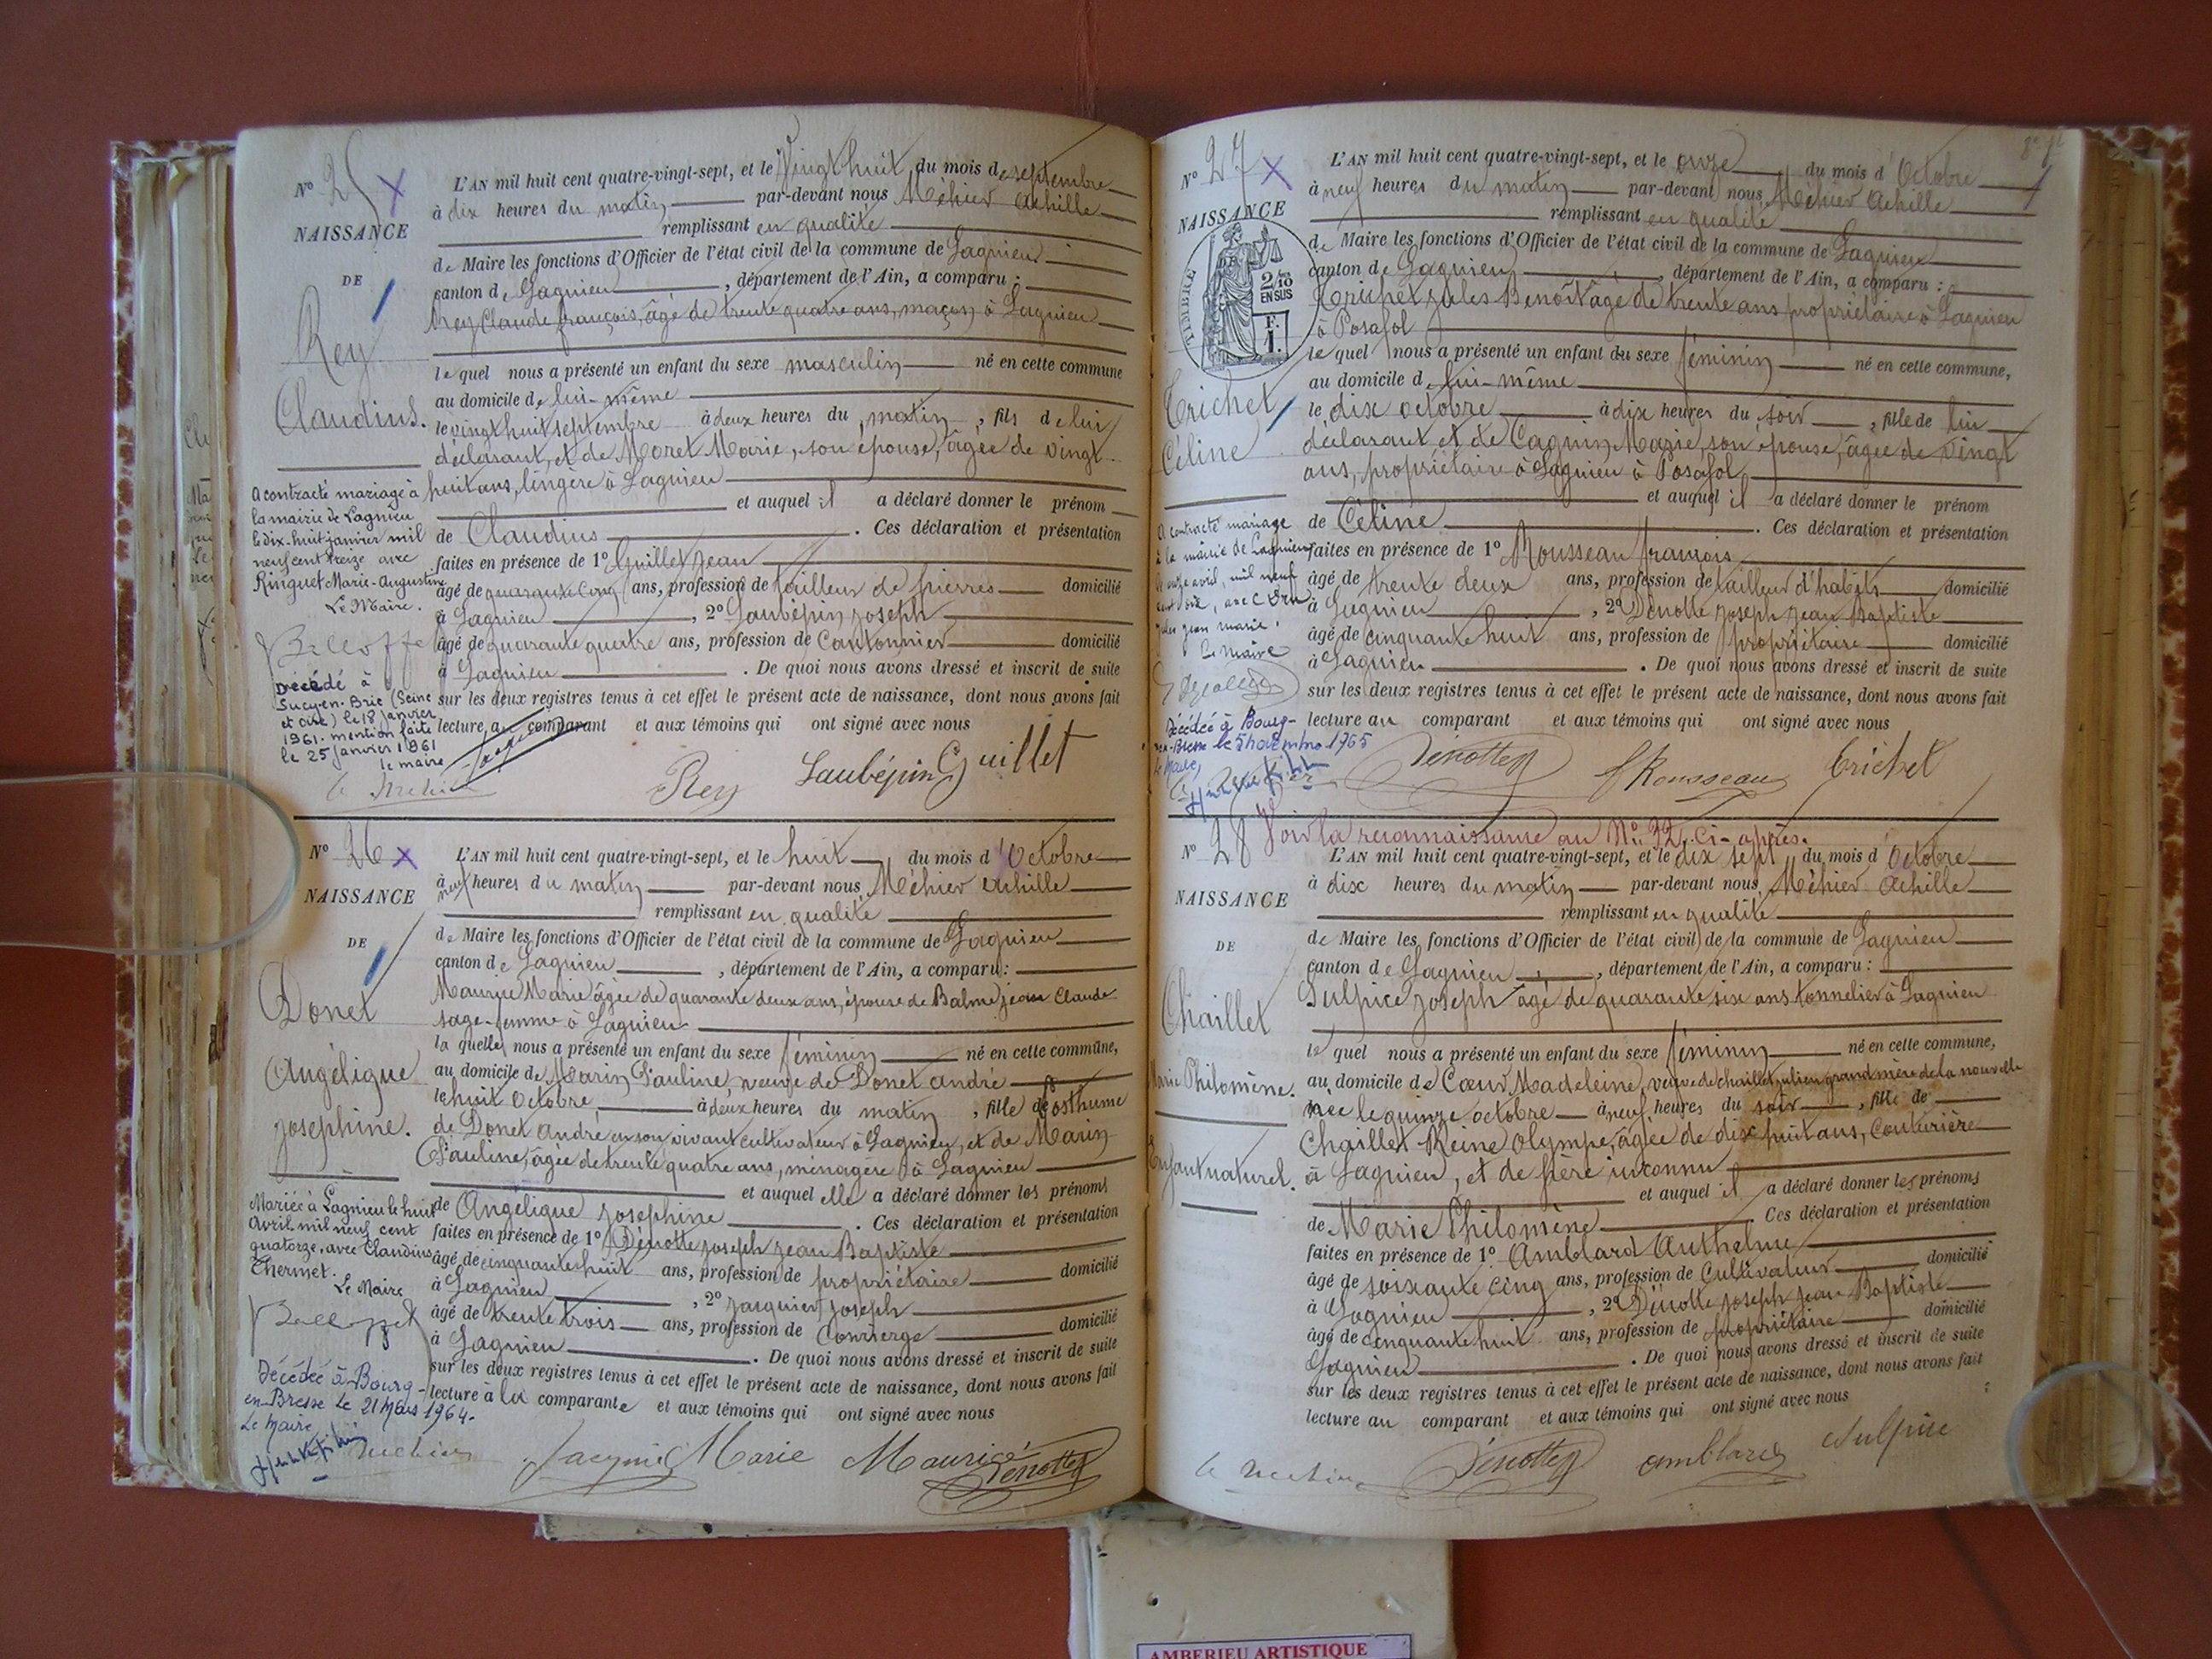 N° 25
NAISSANCE
DE
Rey
Claudius.
L'AN mil huit cent quatre-vingt-sept, et le Vingt huit du mois de septembre
à dix heures du matin par-devant nous Méhier Achille
remplissant en qualité
de Maire les fonctions d'Officier de l'état civil de la commune de Lagnieu
canton de Lagnieu, département de l'Ain, a comparu :
Rey Claude françois, âgé de trente quatre ans, maçon à Lagnieu
le quel nous a présenté un enfant du sexe masculin né en cette commune
au domicile de lui-même
le vingt huit septembre à deux heures du matin, fils de lui
déclarant, et de Moret Marie, son épouse, âgée de vingt
huit ans, lingère à Lagnieu
et auquel il a déclaré donner le prénom
de Claudius. Ces déclaration et présentation
faites en présence de 1° Guillet Jean
âgé de quarante cinq ans, profession de tailleur de pierres domicilié
à Lagnieu, 2° Laubépin Joseph
âgé de quarante quatre ans, profession de Cantonnier domicilié
à Lagnieu. De quoi nous avons dressé et inscrit de suite
sur les deux registres tenus à cet effet le présent acte de naissance, dont nous avons fait
lecture au comparant et aux témoins qui ont signé avec nous
Rey Laubépin Guillet
A contracté mariage à
la mairie de Lagnieu
le dix-huit janvier mil
neuf cent treize avec
Ringuet Marie-Augustine
Le Maire.
Décédé à
Sucy-en-Brie (Seine
et Oise) le 18 janvier
1961. mention faite
le 25 janvier 1961
le maire
N° 26
NAISSANCE
DE
Donet
Angélique
Josephine.
L'AN mil huit cent quatre-vingt-sept, et le huit du mois d'Octobre
à neuf heures du matin par-devant nous Méhier Achille
remplissant en qualité
de Maire les fonctions d'Officier de l'état civil de la commune de Lagnieu
canton de Lagnieu, département de l'Ain, a comparu :
Maurice Marie âgée de quarante deux ans, épouse de Balme jean Claude
sage-femme à Lagnieu
la quelle nous a présenté un enfant du sexe féminin né en cette commune,
au domicile de Marin Pauline, veuve de Donet André
le huit Octobre, à deux heures du matin, fille de Posthume
de Donet André en son vivant cultivateur à Lagnieu, et de Marin
Pauline, âgée de trente quatre ans, ménagère à Lagnieu
et auquel elle a déclaré donner les prénoms
de Angélique Josephine. Ces déclaration et présentation
faites en présence de 1° Dénotte Joseph Jean Baptiste
âgé de cinquante huit ans, profession de propriétaire domicilié
à Lagnieu, 2° Jacquier Joseph
âgé de trente trois ans, profession de Concierge domicilié
à Lagnieu. De quoi nous avons dressé et inscrit de suite
sur les deux registres tenus à cet effet le présent acte de naissance, dont nous avons fait
lecture à la comparante et aux témoins qui ont signé avec nous
Marie Maurice
Mariée à Lagnieu le huit
avril mil neuf cent
quatorze, avec Claudius
Thermet.
Le Maire
Décédée à Bourg-
en-Bresse le 21 Mars 1964.
Le Maire
N° 27
NAISSANCE
DE
TIMBRE
2/10
EN SUS
F.
1.
Trichet
Céline
L'AN mil huit cent quatre-vingt-sept, et le onze du mois d'Octobre
à neuf heures du matin par-devant nous Méhier Achille
remplissant en qualité
de Maire les fonctions d'Officier de l'état civil de la commune de Lagnieu
canton de Lagnieu, département de l'Ain, a comparu :
Trichet jules Benoît âgé de trente ans propriétaire à Lagnieu
à Posafol
le quel nous a présenté un enfant du sexe féminin né en cette commune,
au domicile de lui-même
le dix octobre à dix heures du soir, fille de lui
déclarant et de Cagnin Marie, son épouse, âgée de vingt
ans, propriétaire à Lagnieu à Posafol
et auquel il a déclaré donner le prénom
de Céline. Ces déclaration et présentation
faites en présence de 1° Rousseau françois
âgé de trente deux ans, profession de tailleur d'habits domicilié
à Lagnieu, 2° Dénotte Joseph Jean Baptiste
âgé de cinquante huit ans, profession de propriétaire domicilié
à Lagnieu. De quoi nous avons dressé et inscrit de suite
sur les deux registres tenus à cet effet le présent acte de naissance, dont nous avons fait
lecture au comparant et aux témoins qui ont signé avec nous
Dénotte Rousseau Trichet
A contracté mariage
à la mairie de Lagnieu
le onze avril, mil neuf
cent
jules jean marie.
Le Maire
Décédée à Bourg-
en-Bresse le 5 novembre 1965
Le Maire,
N° 28 Voir la reconnaissance au N° 32 ci-après.
NAISSANCE
DE
Chaillet
Marie Philomène.
Enfant naturel.
L'AN mil huit cent quatre-vingt-sept, et le dix sept du mois d'Octobre
à dix heures du matin par-devant nous Méhier Achille
remplissant en qualité
de Maire les fonctions d'Officier de l'état civil de la commune de Lagnieu
canton de Lagnieu, département de l'Ain, a comparu :
Sulpice Joseph âgé de quarante six ans tonnelier à Lagnieu
le quel nous a présenté un enfant du sexe féminin né en cette commune,
au domicile de Cœur Madeleine, veuve de chaillet julien grand mère de la nouvelle
née le quinze octobre à neuf heures du soir, fille de
Chaillet Reine Olympe, âgée de dix huit ans, Couturière
à Lagnieu, et de père inconnu
et auquel il a déclaré donner les prénoms
de Marie Philomène Ces déclaration et présentation
faites en présence de 1° Amblard Anthelme
âgé de soixante cinq ans, profession de Cultivateur domicilié
à Lagnieu, 2° Dénotte Joseph Jean Baptiste
âgé de cinquante huit ans, profession de propriétaire domicilié
Lagnieu. De quoi nous avons dressé et inscrit de suite
sur les deux registres tenus à cet effet le présent acte de naissance, dont nous avons fait
lecture au comparant et aux témoins qui ont signé avec nous
Dénotte amblard Sulpice
AMBERIEU ARTISTIQUE